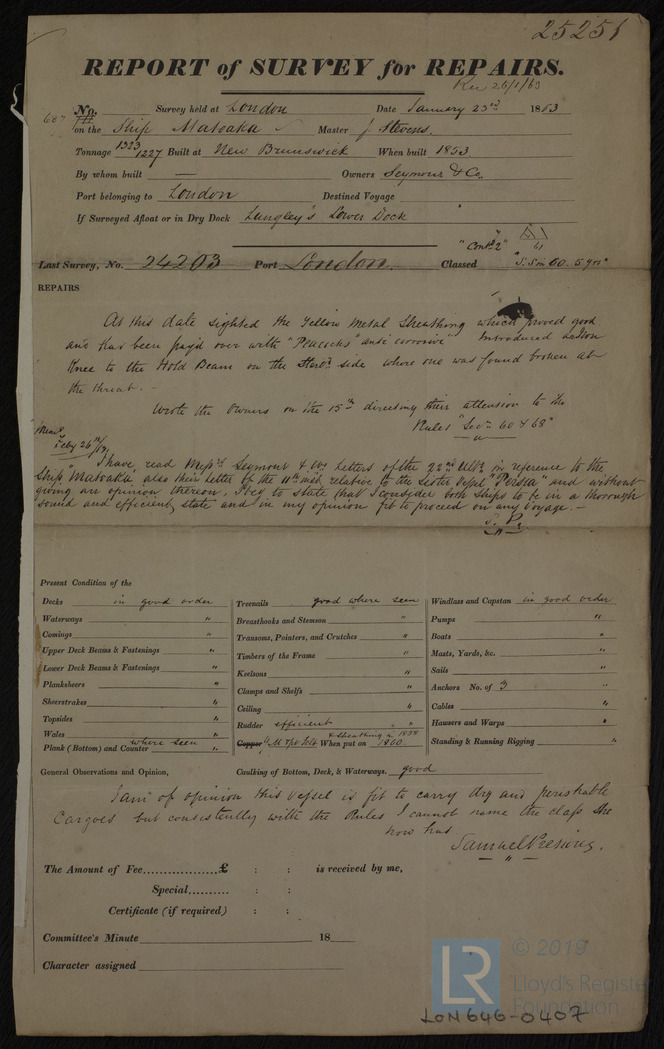 25251
REPORT of SURVEY for REPAIRS.
Rec 26/1/63
No. Survey held at London Date January 23rd 1863
on the Ship Matoaka Master J Stevens.
Tonnage 1323/1227 Built at New Brunswick When built 1853
By whom built — Owners Seymour & Co.
Port belonging to London Destined Voyage
If Surveyed Afloat or in Dry Dock Langley's Lower Dock
"Contd 2" 61
Last Survey, No. 24203 Port London Classed "S.S in 60. 5 yrs"
REPAIRS
At this date sighted the Yellow Metal Sheathing which proved good
and has been pay'd over with "Peacocks" anti corrosive Introduced an Iron
Knee to the Hold Beam on the Starbd. side where one was found broken at
the throat. -
Wrote the Owners on the 15th directing their attention to the
Rules "Secn. 60 & 68"
26th/
I have read Messrs Seymour & Co. Letters of the 22nd Ulto. in reference to the
Ship "Matoaka" also their Letter of the 11th inst relative to the Sister Vessel "Persia" and without
giving an opinion thereon, I beg to State that I consider both Ships to be in a thorough
sound and efficient state and in my opinion fit to proceed on any Voyage. -
S. P.
Present Condition of the
Decks in good order
Waterways "
Comings "
Upper Deck Beams & Fastenings "
Lower Deck Beams & Fastenings "
Planksheers "
Sheerstrakes "
Topsides "
Wales "
Plank (Bottom) and Counter where seen "
Treenails good where seen
Breasthooks and Stemson "
Transoms, Pointers, and Crutches "
Timbers of the Frame "
Keelsons "
Clamps and Shelfs "
Ceiling "
Rudder efficient " "
& Sheathing in 1858
Copper Y M When put on 1860
Windlass and Capstan in good order
Pumps "
Boats "
Masts, Yards, &c. "
Sails "
Anchors No. of 3 "
Cables "
Hausers and Warps "
Standing & Running Rigging "
General Observations and Opinion, Caulking of Bottom, Deck, & Waterways. good
I am of opinion this Vessel is fit to carry dry and perishable
Cargoes but consistently with the Rules I cannot name the class She
now has
Samuel Presious.
The Amount of Fee................£ : : is received by me,
Special.......... : :
Certificate (if required) : :
Committee's Minute 18
Character assigned
LR © 2019
Lloyd's Register
Foundation
LON646-0407